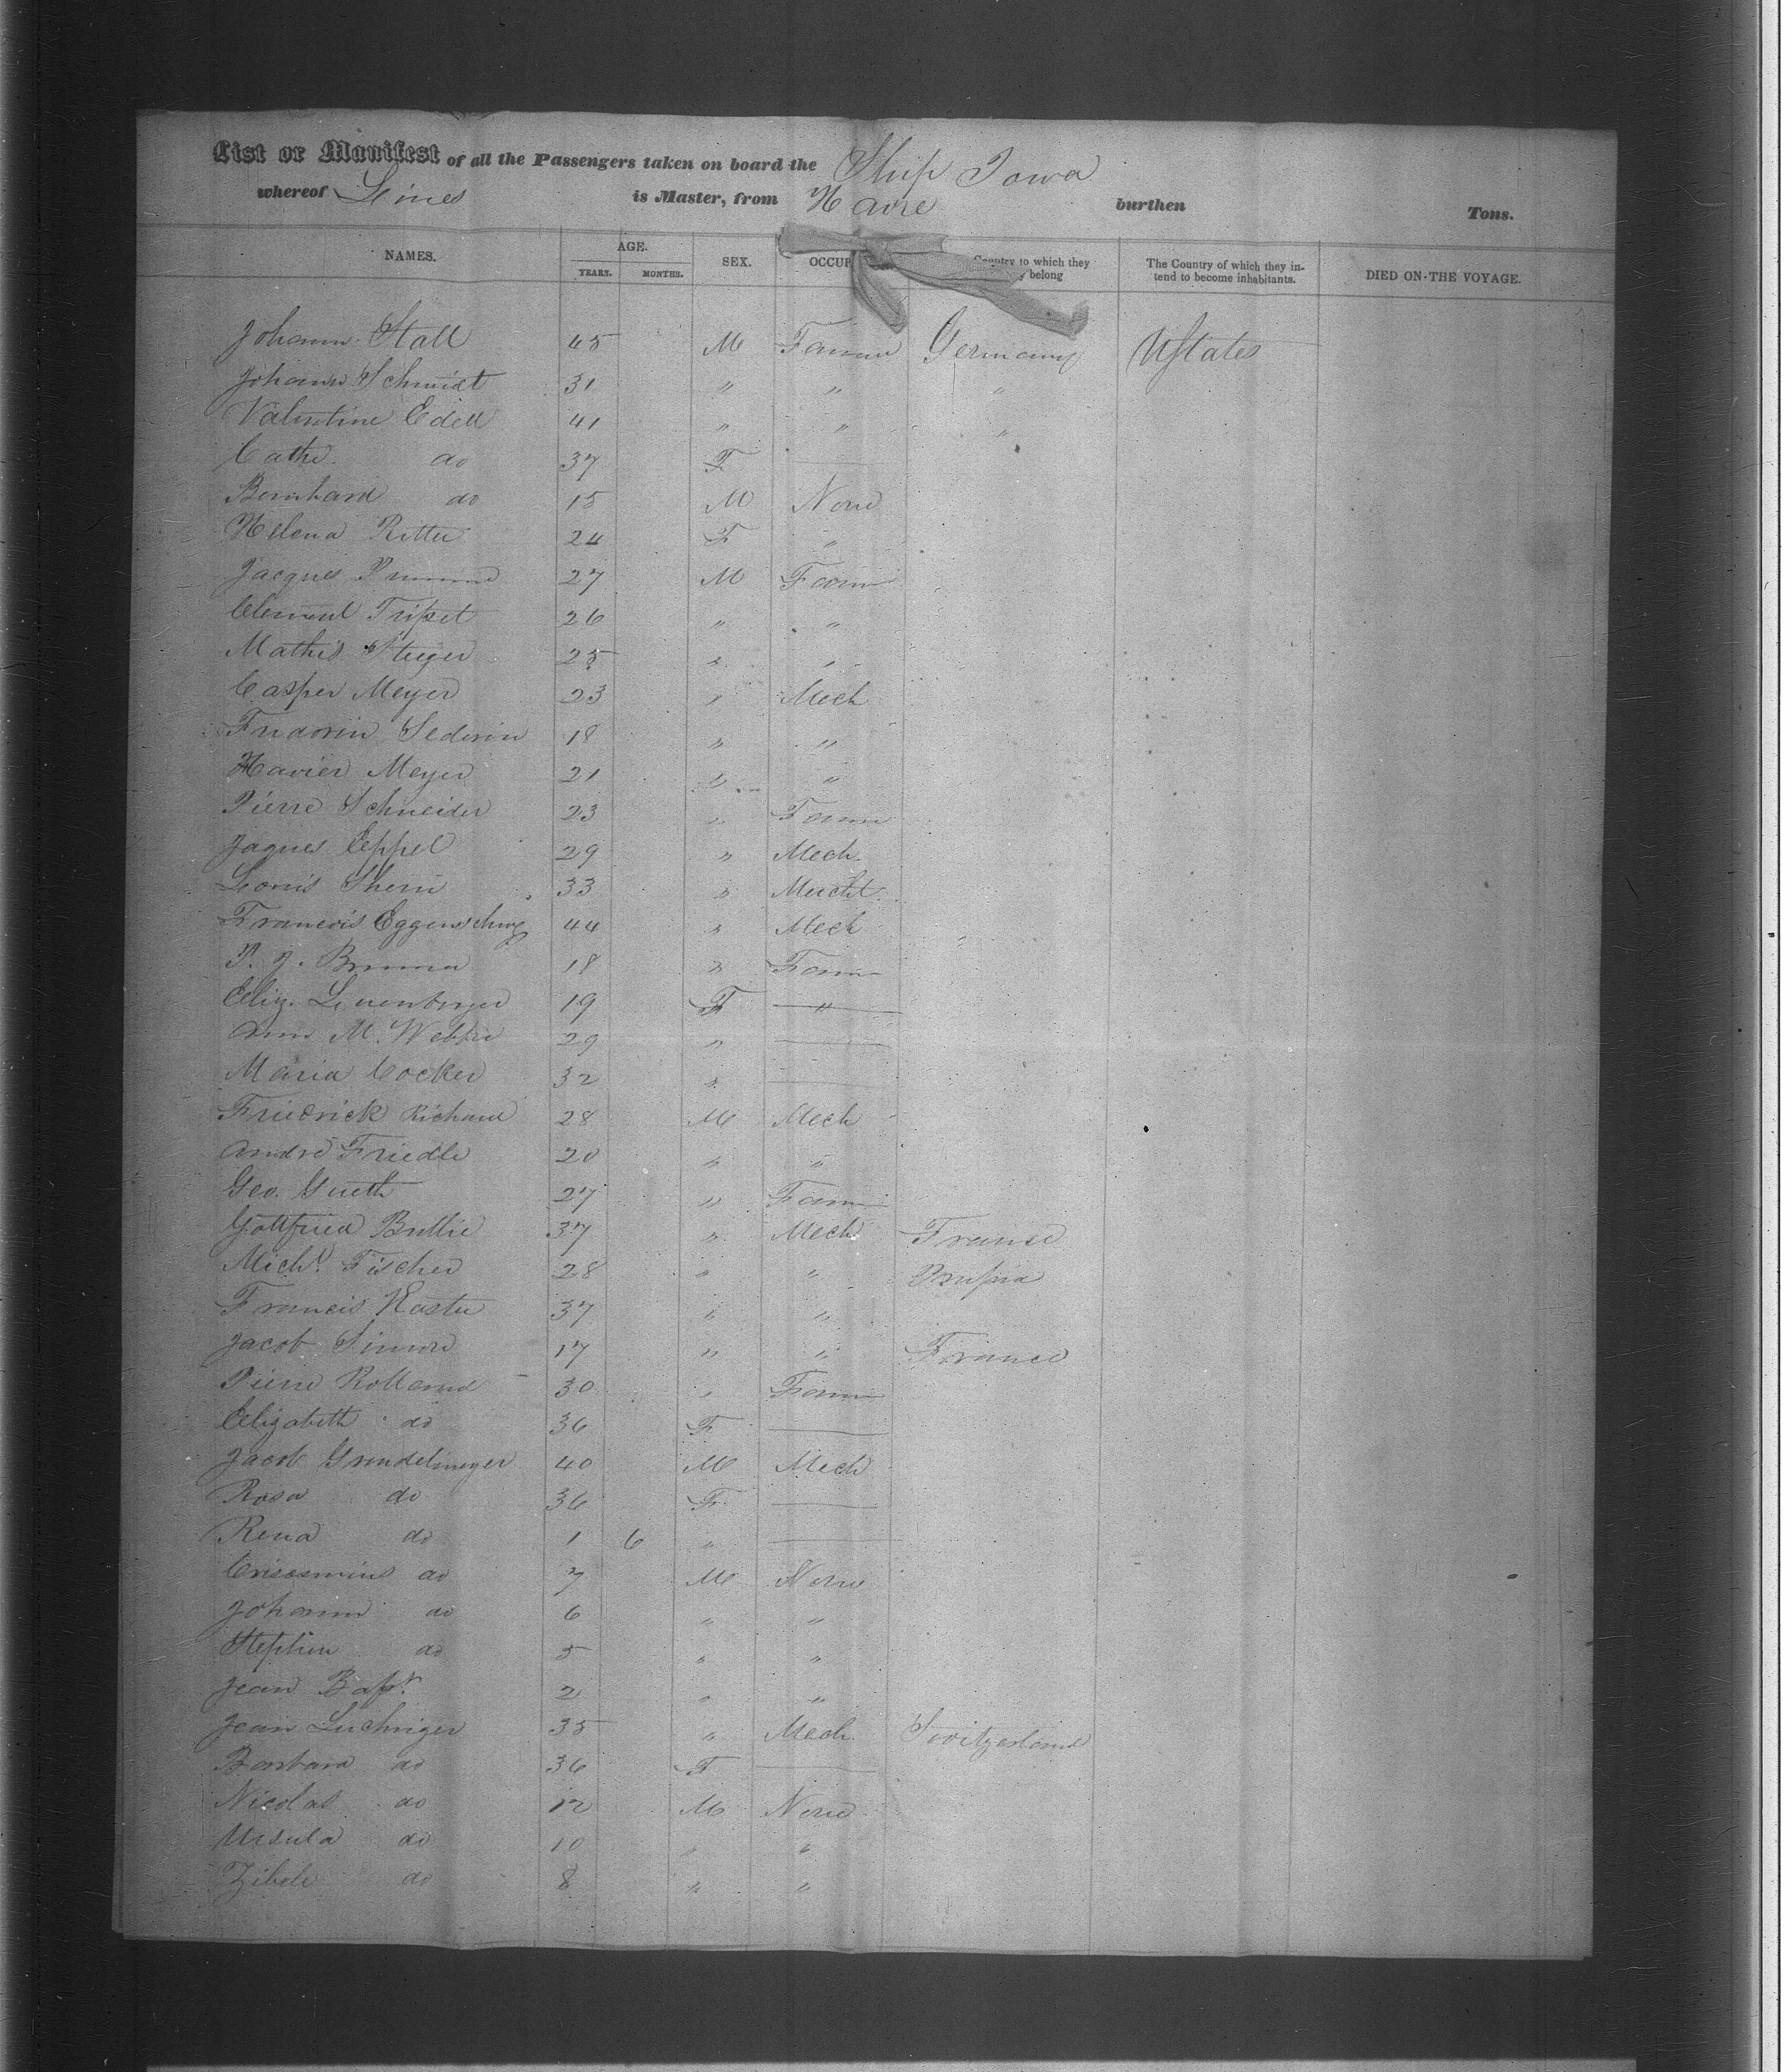 List or Manifest of all the Passengers taken on board the Ship Iowa
whereof Lines is Master, from Havre burthen Tons.
NAMES. AGE. YEARS. MONTHS. SEX. OCCUP Country to which they belong The Country of which they intend to become inhabitants. DIED ON THE VOYAGE.
Johann Stall 45 M Farmer Germany UStates
Johann Schmidt 31 " " "
Valentine Edell 41 " " "
Cathe. do 37 F —
Bernhard do 15 M None
Helena Ritter 24 F "
Jacques 27 M Farm
Clement 26 " "
Mathis Steiger 25 " "
Casper Meyer 23 " Mech
Fridorin 18 " "
Xavier Meyer 21 " "
Pierre Schneider 23 " Farmr
Jaques Eppel 29 " Mech.
Louis 33 " Mercht.
Francois 44 " Mech
P. J. 18 " Farm
Eliz. Leuenberger 19 F "
Ann M. 29 " —
Maria Cocker 32 " —
Friedrick Richard 28 M Mech
André Friedle 20 " "
Geo. 27 " Farm
Gottfried 37 " Mech France
Michl. Fischer 28 " " Prussia
Francis 37 " "
Jacob Simon 17 " " France
Pierre Rolland 30 " Farm
Elizabeth do 36 F —
Jacob Grundelmeyer 40 M Mech
Rosa do 36 F —
Rena do 1 6 " —
do 7 M None
Johann do 6 " "
Stephen do 5 " "
Jean Bapt. 2 " "
Jean Luchsiger 35 " Mech. Switzerland
Barbara do 36 F —
Nicolas do 12 M None
Ursula do 10 " "
do 8 " "